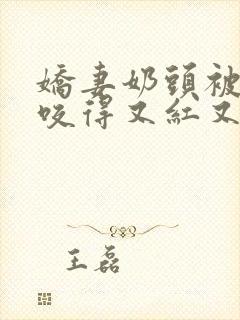 嬌妻奶頭被
咬得又紅又
王磊